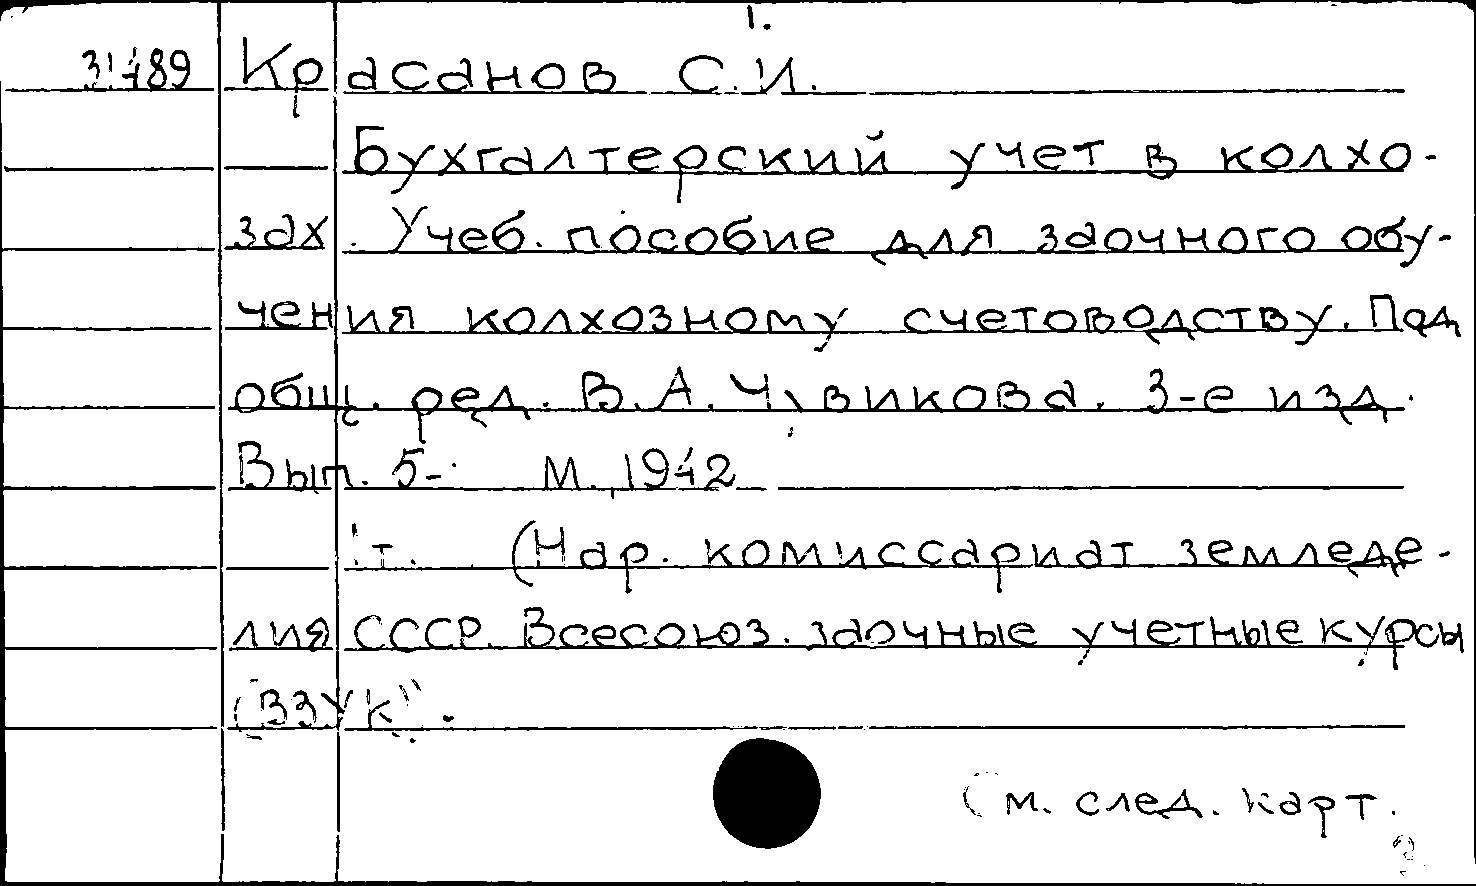 1.
31489 Красанов С.И.
Бухгалтерский учет в колхо-
зах. Учеб. пособие для заочного обу-
чения колхозному счетоводству. Под
общ. ред. В.А. Чувикова. 3-е изд.
Вып. 5- М., 1942
т. (Нар. комиссариат земледе-
лия СССР. Всесоюз. заочные учетные курсы
"ВЗУК".
См. след. карт.